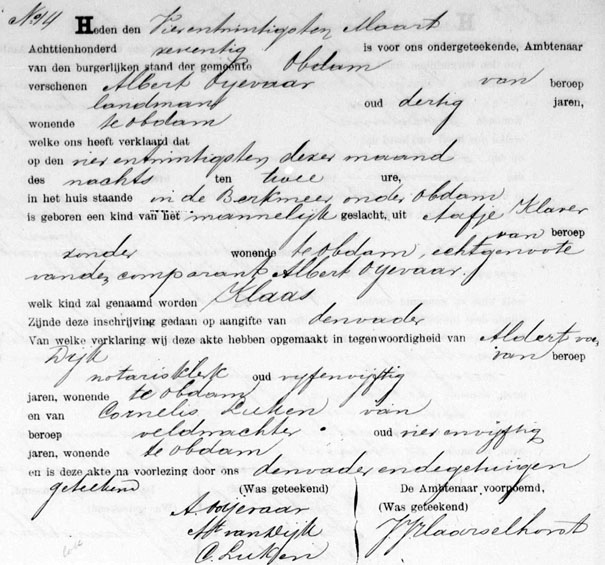 No 14 Heden den Vierentwintigsten Maart
Achttienhonderd zeventig is voor ons ondergeteekende, Ambtenaar
van den burgerlijken stand der gemeente Obdam
verschenen Albert Oyevaar van beroep
landman oud dertig jaren,
wonende te Obdam
welke ons heeft verklaard dat
op den vierentwintigsten dezer maand
des nachts ten twee ure,
in het huis staande in de Berkmeer onder Obdam
is geboren een kind van het mannelijk geslacht, uit Aafje Klaver
van beroep
zonder wonende te Obdam, echtgenoote
van de, comparant, Albert Oyevaar.
welk kind zal genaamd worden Klaas
Zijnde deze inschrijving gedaan op aangifte van den vader
Van welke verklaring wij deze akte hebben opgemaakt in tegenwoordigheid van Aldert van
Dijk van beroep
notarisklerk oud vyfenvyftig
jaren, wonende te Obdam
en van Cornelis Lutken van
beroep veldwachter oud vierenvijftig
jaren, wonende te Obdam
en is deze akte na voorlezing door ons den vader en de getuigen
geteekend (Was geteekend) De Ambtenaar voornoemd,
A Oojevaar (Was geteekend)
At van Dijk
C. Lutken